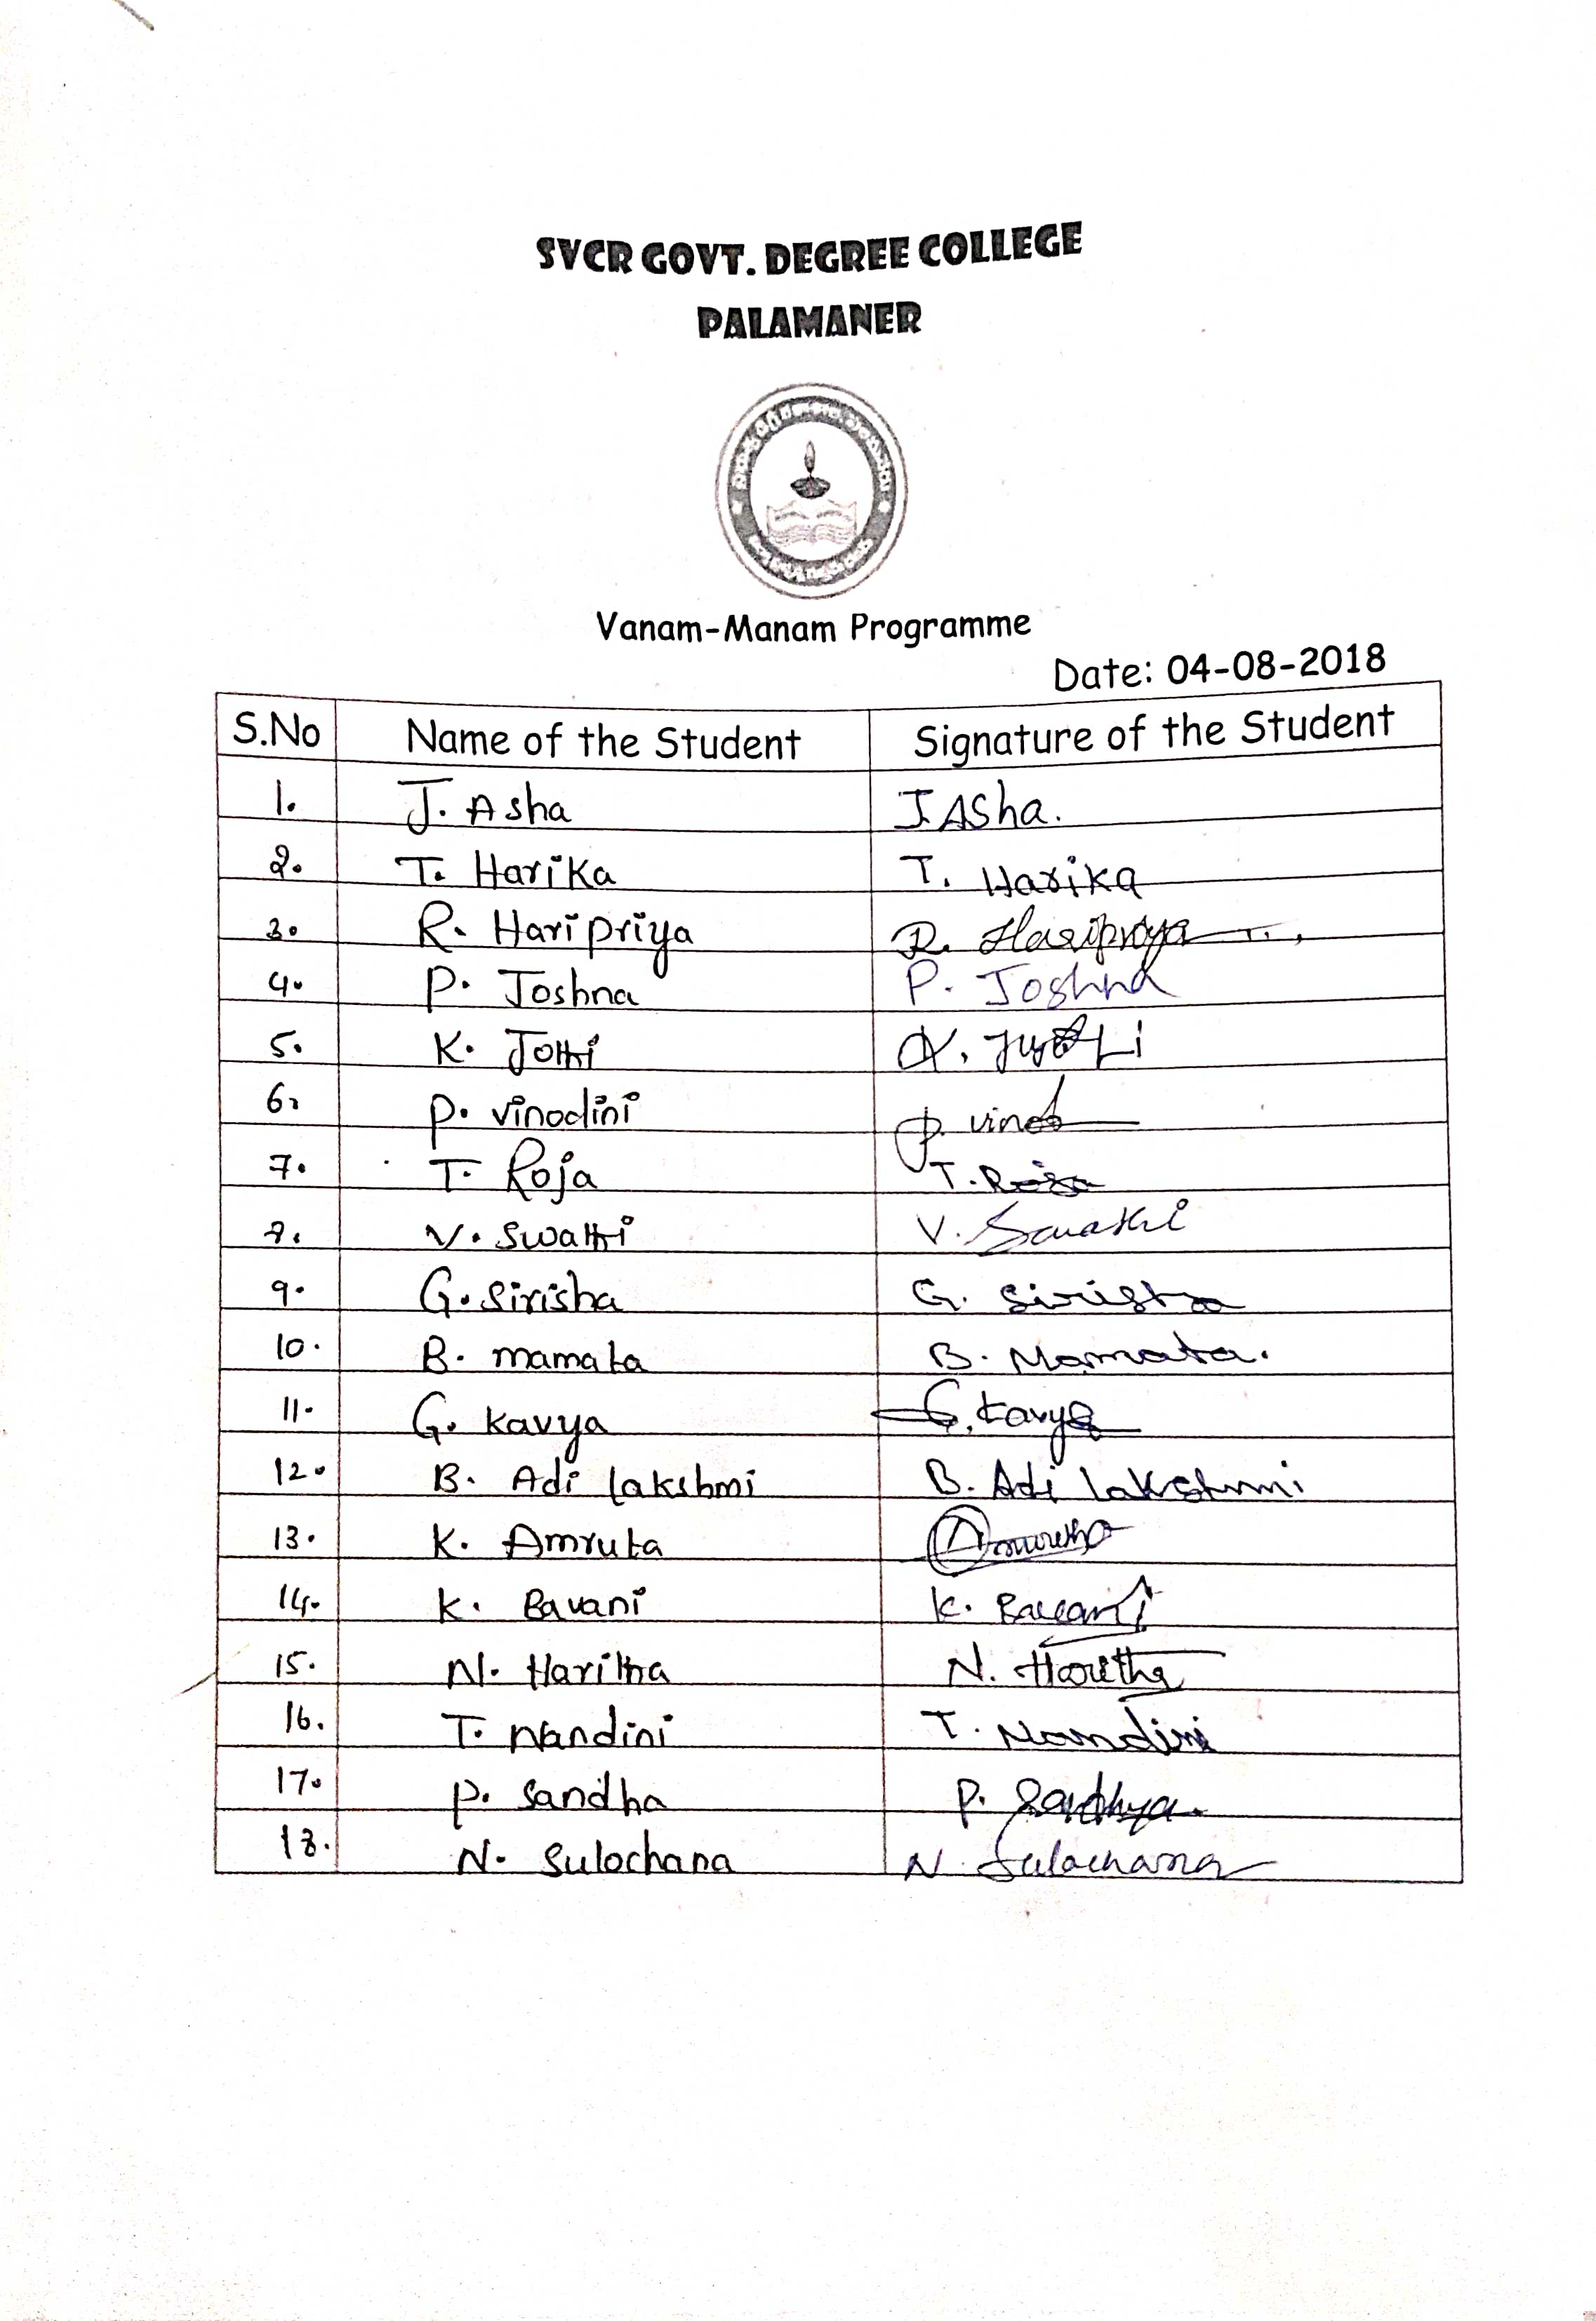 SVCR GOVT. DEGREE COLLEGE
PALAMANER
Vanam-Manam Programme
Date: 04-08-2018
S.No Name of the Student Signature of the Student
1. J. Asha J. ASha.
2. T. Harika T. Harika
3. R. Haripriya R. Haripriya
4. P. Joshna P. Joshna
5. K. Jothi K.
6. P. vinodini P. vinod
7. T. Roja T. Roja
8. V. Swathi V. Swathi
9. G. Sirisha G. Sirisha
10. B. mamata B. Mamata.
11. G. kavya G. kavya
12. B. Adi lakshmi B. Adi lakshmi
13. K. Amruta Amrutha
14. K. Bavani K. Bavani
15. N. Haritha N. Haritha
16. T. Nandini T. Nandini
17. P. Sandha P. Sandhya.
18. N. Sulochana N. Sulochana